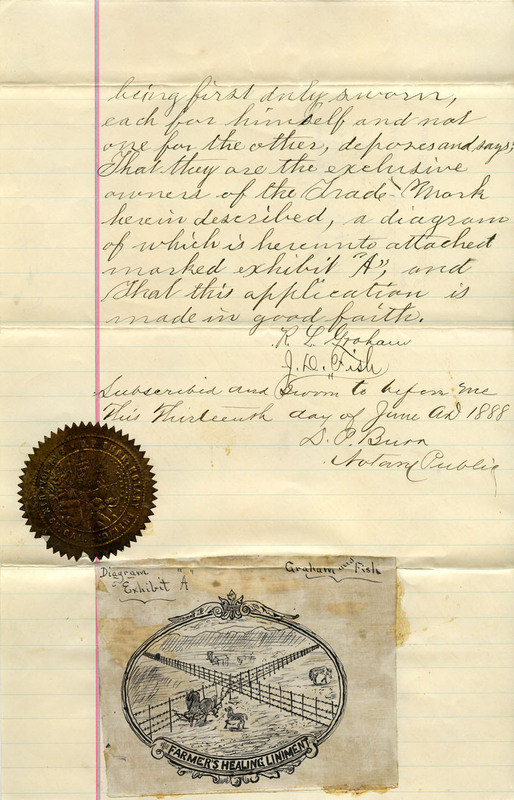 being first duly sworn,
each for himself and not
one for the other, deposes and says;
That they are the exclusive
owners of the Trade-Mark
herein described, a diagram
of which is hereunto attached
marked exhibit "A", and
that this application is
made in good faith.
R. L. Graham
J. D. Fish
Subscribed and Sworn to before me
This Thirteenth day of June AD 1888
Notary Public
Diagram "A"
Exhibit
Graham and Fish
FARMER'S HEALING LINIMENT